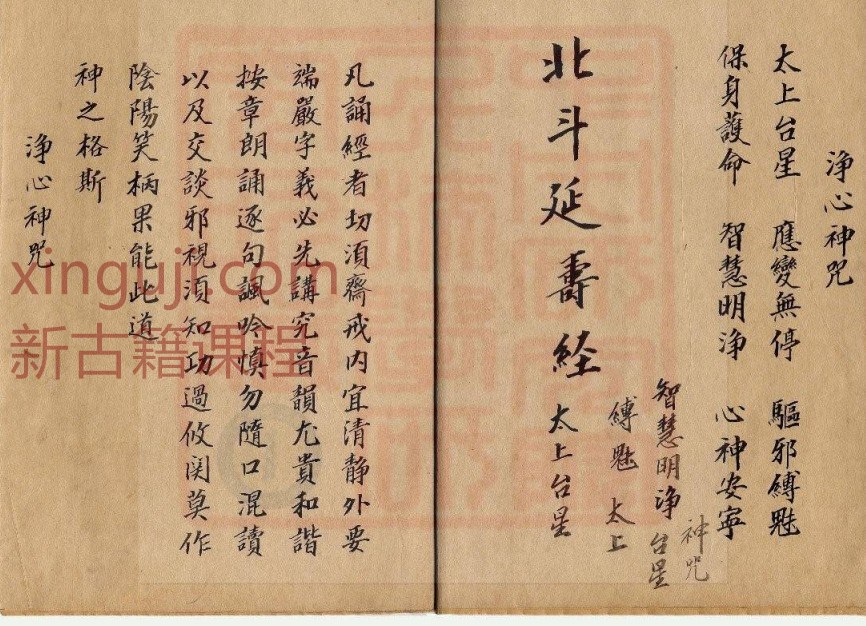 浄心神咒
太上台星 應變無停 驅邪縛魅
保身護命 智慧明浄 心神安寧
神咒
智慧明浄 台星
縛魅 太上
北斗延壽経 太上台星
凡誦經者切須齋戒内宜清静外要
端嚴字義必先講究音韻尤貴和諧
按章朗誦逐句諷吟慎勿隨口混讀
以及交談邪視須知功過攸関莫作
陰陽笑柄果能此道
神之格斯
浄心神咒
xinguji.com
新古籍课程